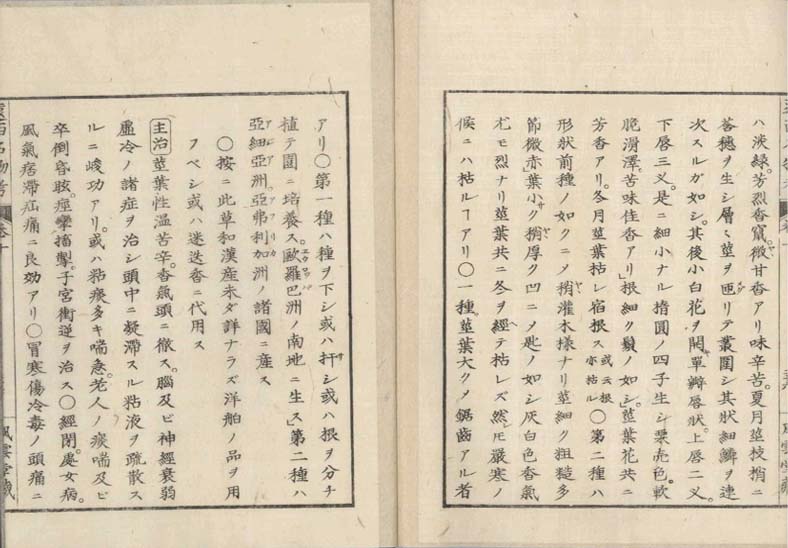 ハ淡緑。芳烈香竄。微甘香アリ味辛苦。夏月莖枝梢ニ
善穂ヲ生シ層々莖ヲ匝リテ叢圍シ其狀細鱗ヲ連
次スルガ如シ。其後小白花ヲ開。單瓣唇狀。上唇二叉。
下唇三叉。是ニ細小ナル楕圓ノ四子生シ栗殼色。軟
脆滑澤。苦味佳香アリ」根細ク鬚ノ如シ。」莖葉花共ニ
芳香アリ。冬月莖葉枯レ宿根ス 或云根亦枯ル 〇第二種ハ
形狀前種ノ如クニメ稍灌木様ナリ莖細ク粗糙多
節微赤」葉小ク稍厚ク凹ニメ匙ノ如シ灰白色香氣
尤モ烈ナリ莖葉共ニ冬ヲ經テ枯レズ然ㇾ𪜈嚴寒ノ
候ニハ枯ルヿアリ〇一種。莖葉大クメ鋸齒アル者
アリ〇第一種ハ種ヲ下シ或ハ扦シ或ハ根ヲ分チ
植テ圃ニ培養ス。歐羅巴洲ノ南地ニ生ス」第二種ハ
亞細亞洲亞弗利加洲ノ諸國ニ産ス
〇按ニ此草和漢産未ダ詳ナラズ洋舶ノ品ヲ用
フベシ或ハ迷迭香ニ代用ス
主治 莖葉性温苦辛。香氣頭ニ徹ス。腦及ビ神經衰弱
虚冷ノ諸症ヲ治シ頭中ニ凝滯スル粘液ヲ疏散ス
ルニ峻功アリ。或ハ粘痰多キ喘急。老人ノ痰喘及ビ
卒倒昏眩。痙攣搐掣。子宮衝逆ヲ治ス〇經閉。處女病。
風氣痞滯疝痛ニ良効アリ〇冒寒傷冷毒ノ頭痛ニ
風雲堂藏